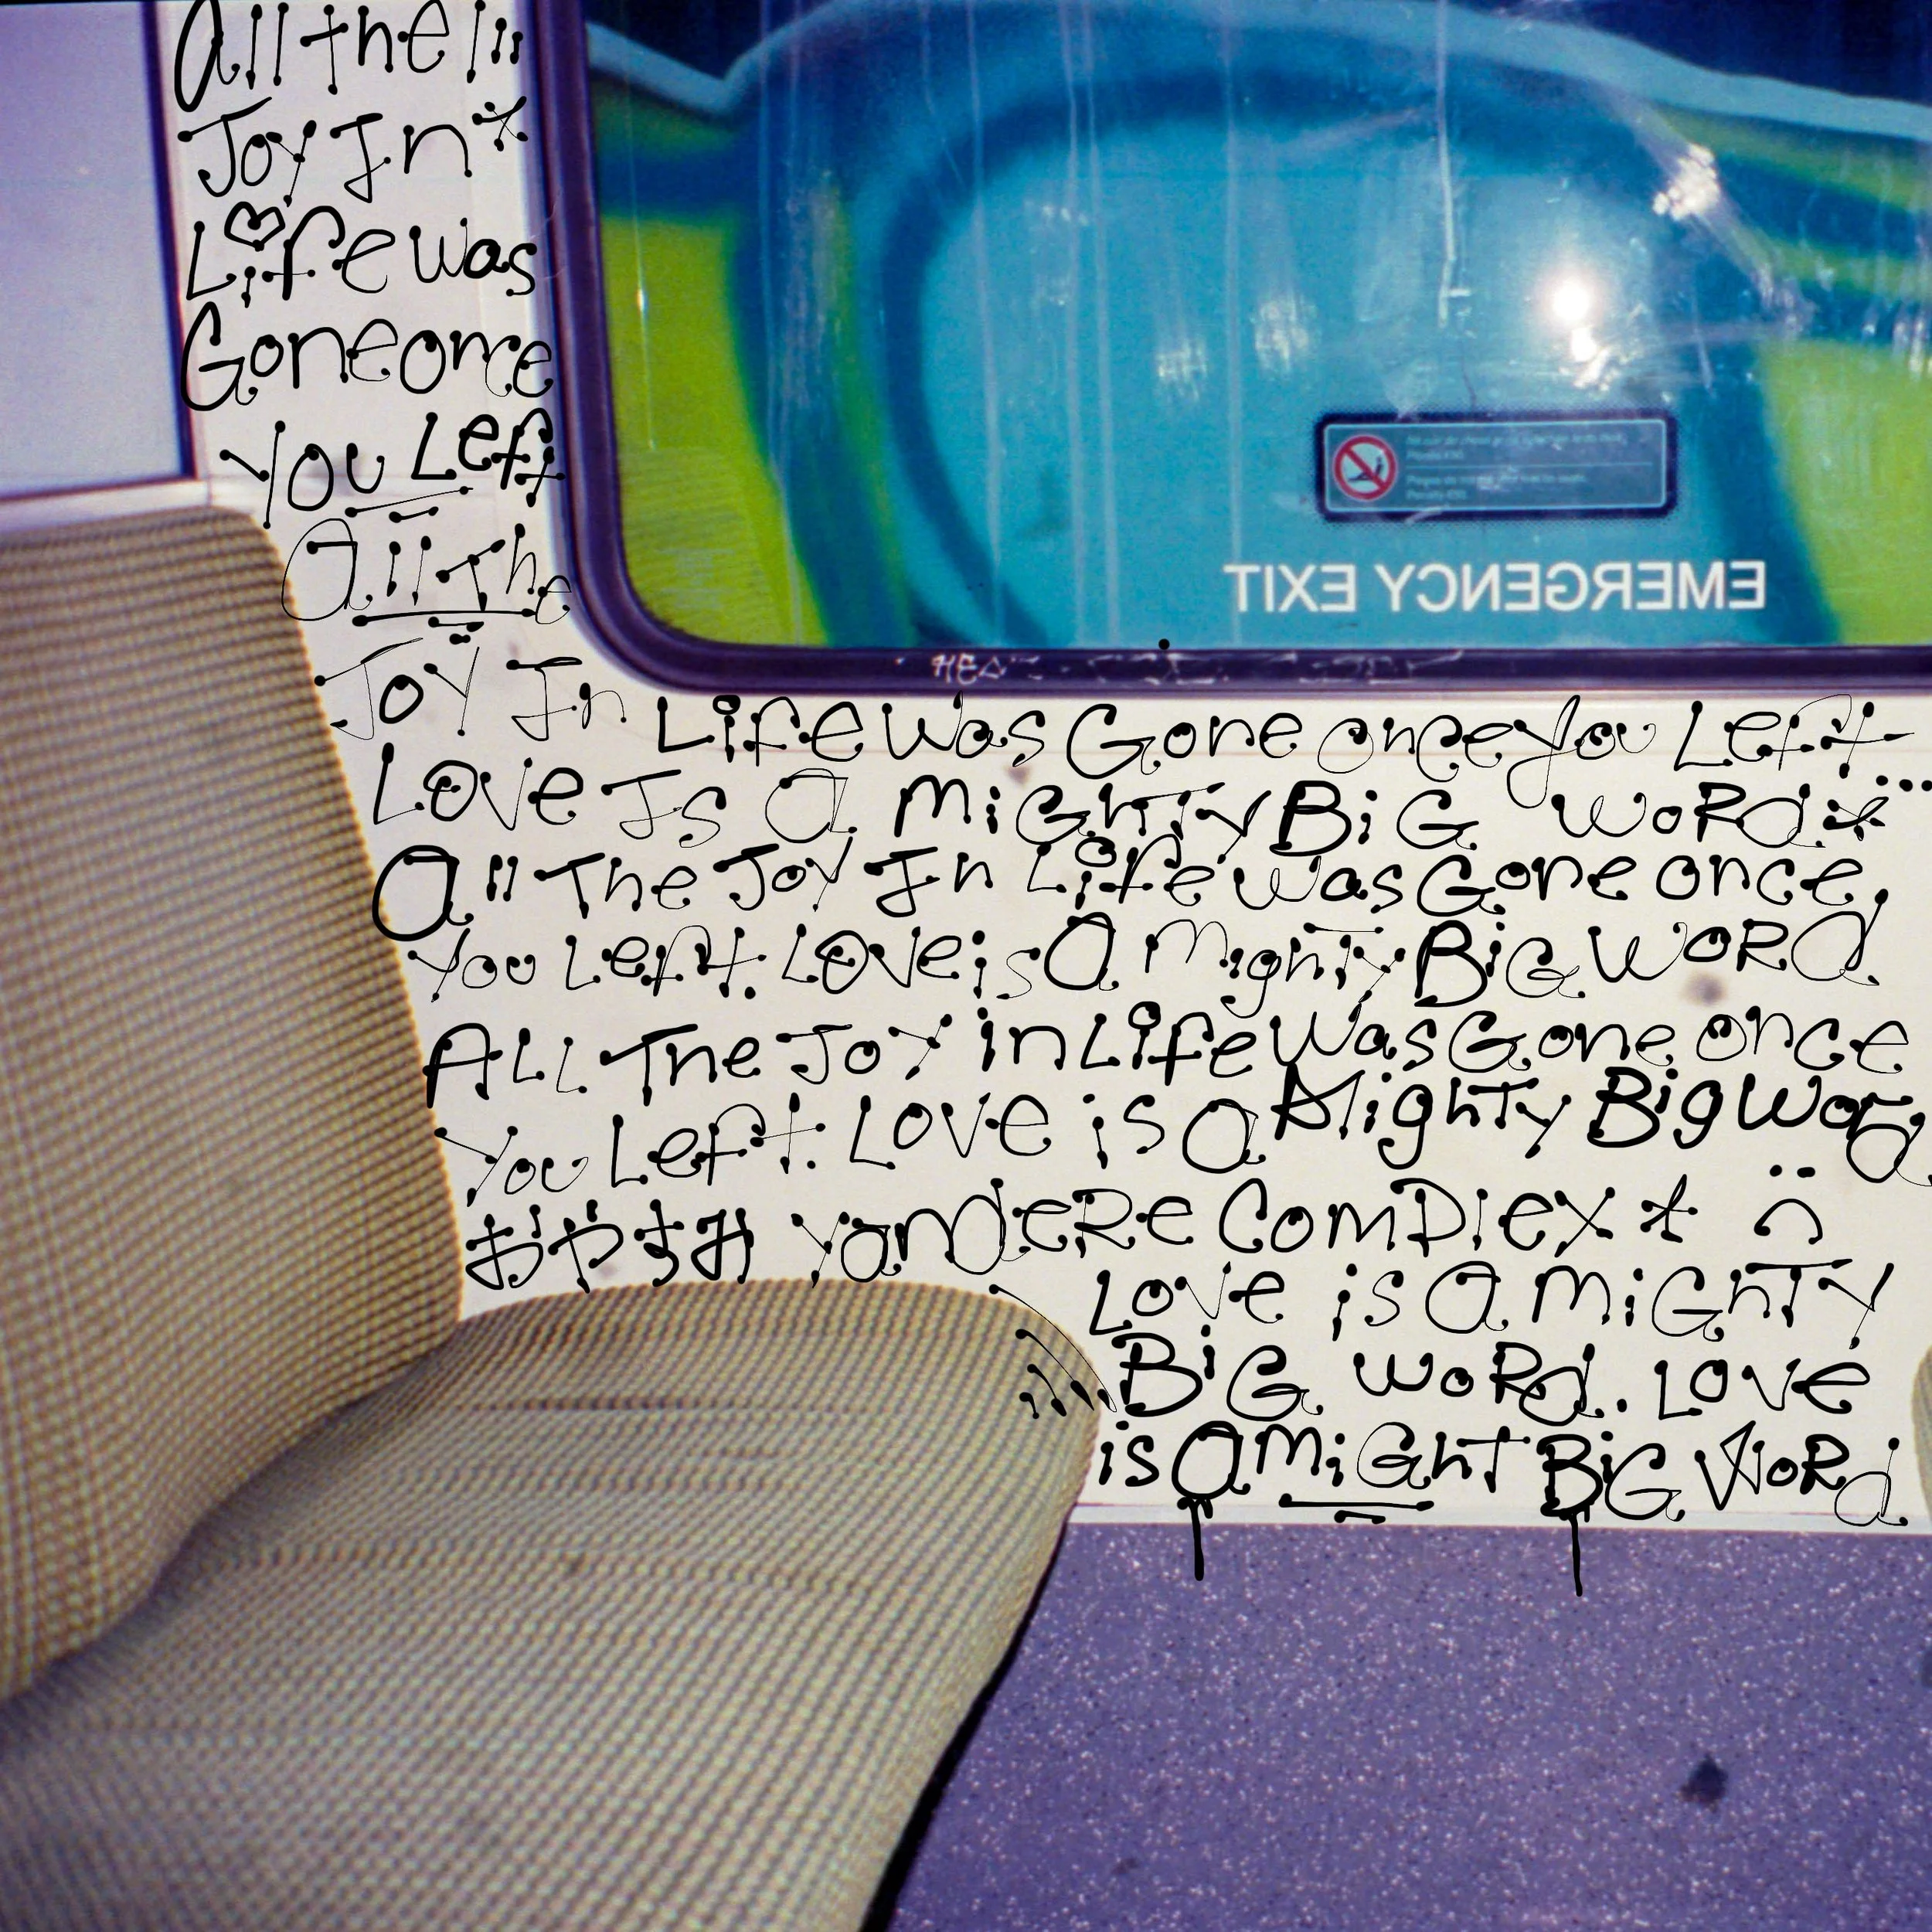 All the
Joy In
Life was
Gone once
You Left
All The
Joy In Life was Gone once you Left
Love Is A Mighty Big Word
All The Joy In Life was Gone once
You Left. Love is A Mighty Big Word
ALL The Joy in Life Was Gone once
You Left. Love is a Mighty Big Word
おやすみ yandere Complex
Love is A Mighty
Big Word.. Love
is A Might Big Word
EMERGENCY EXIT